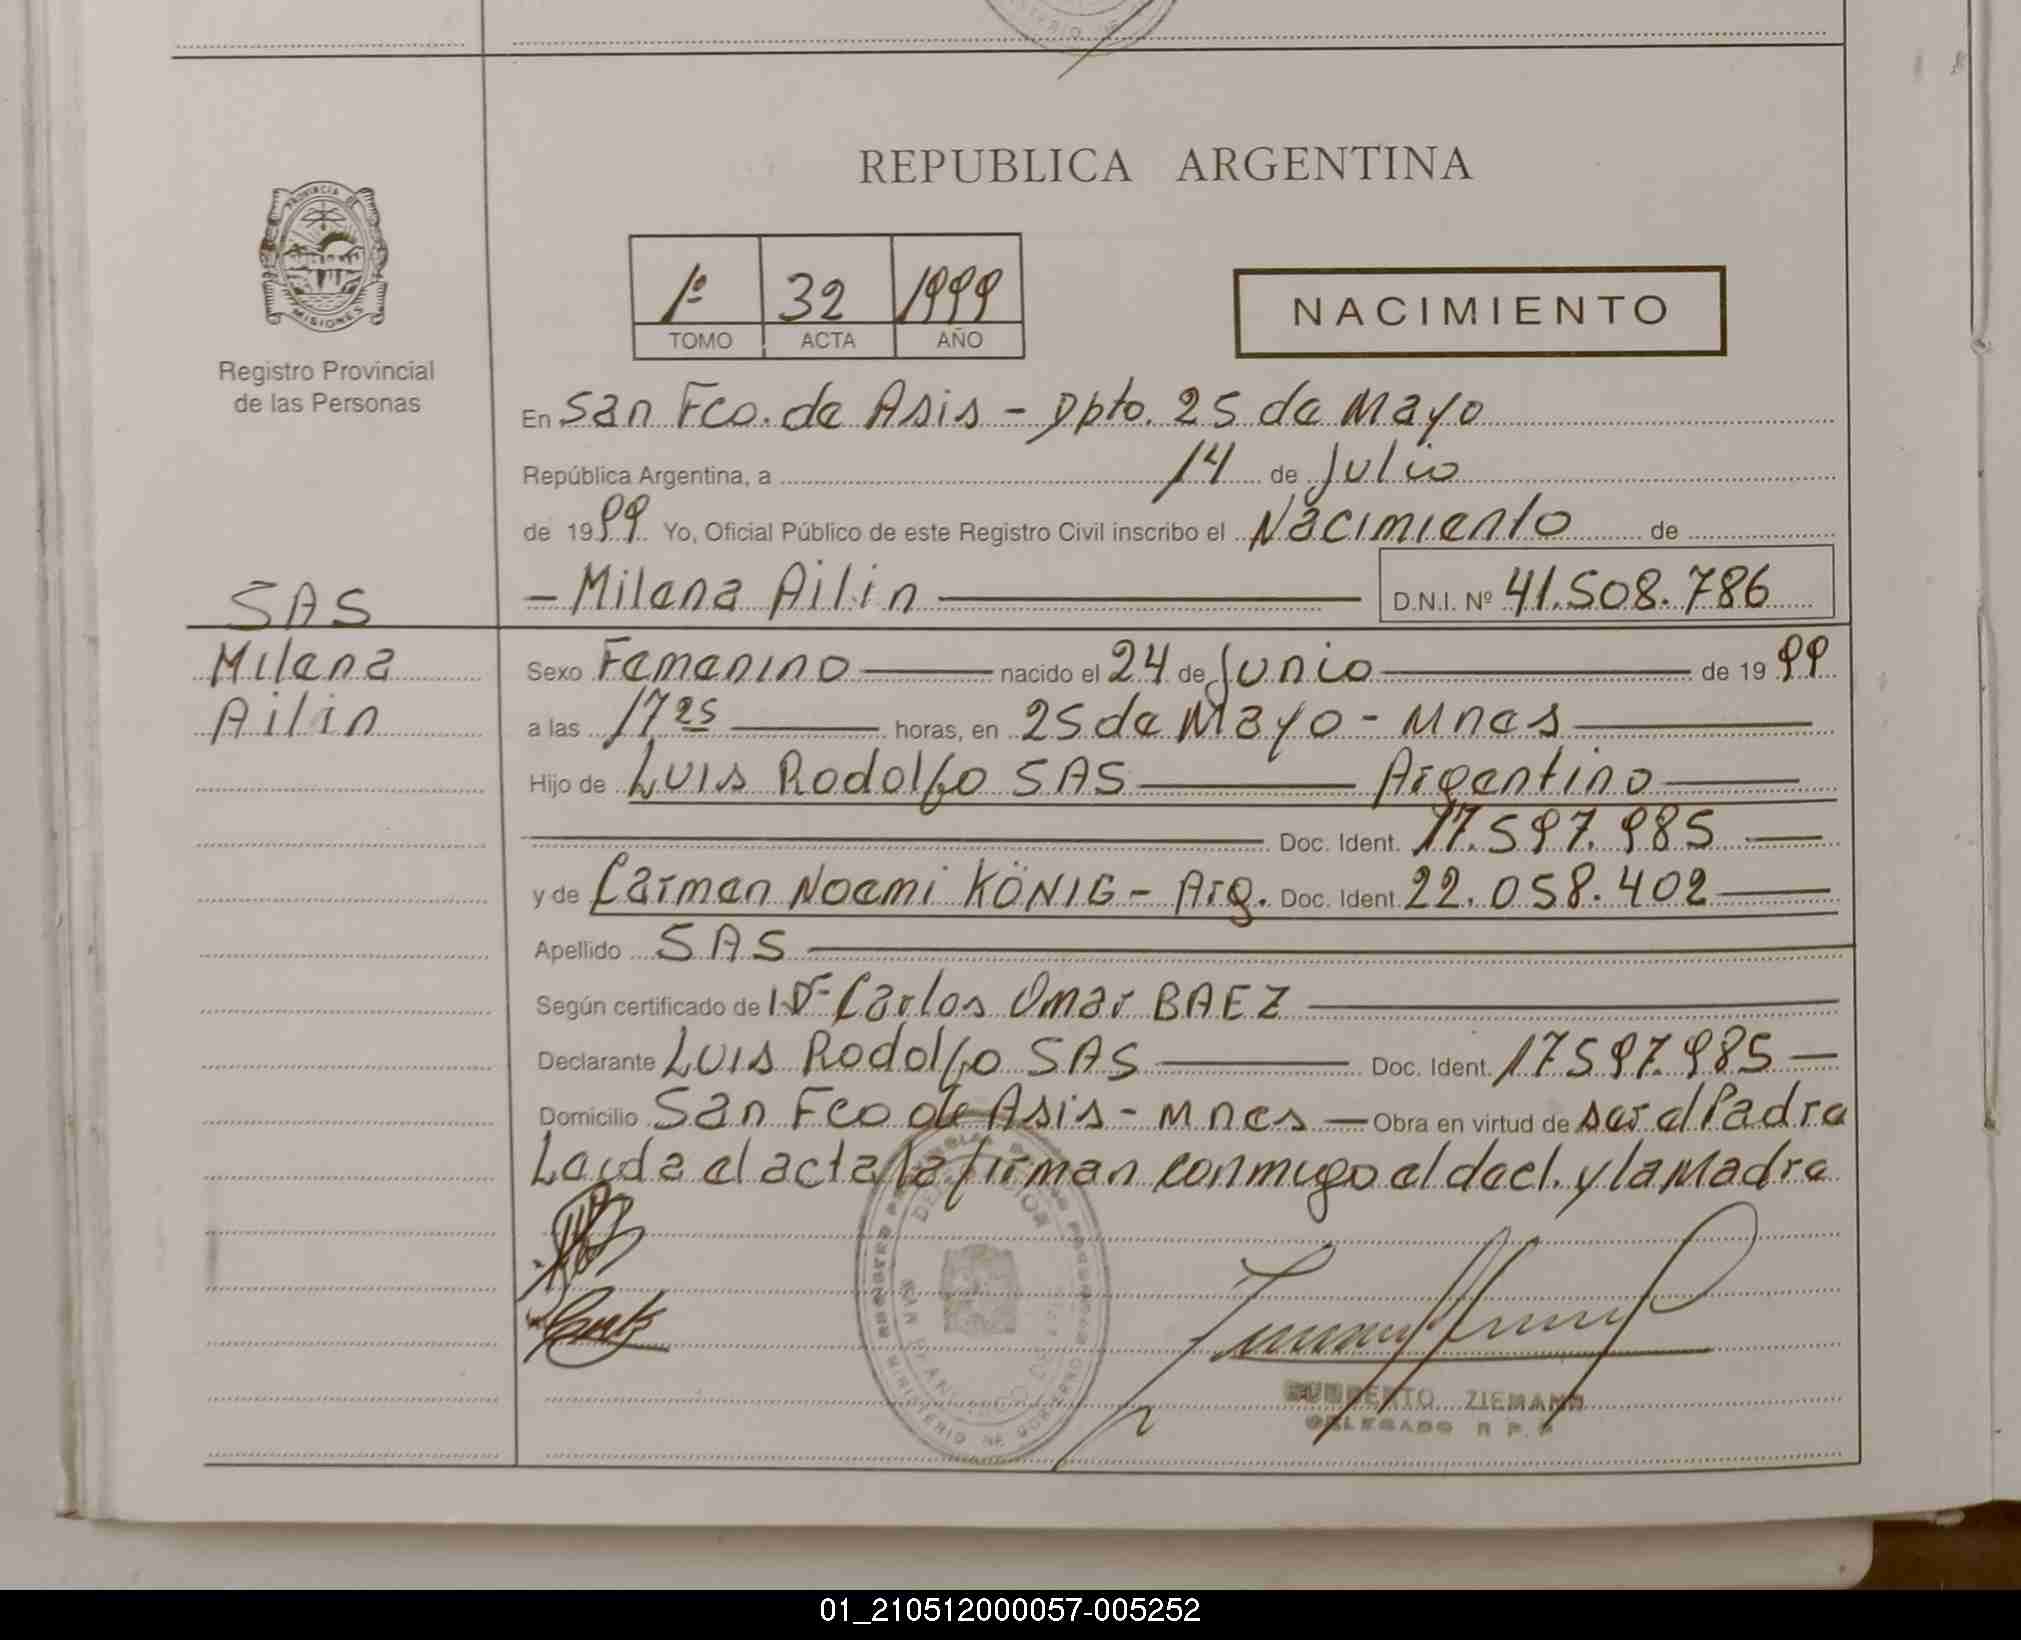 REPUBLICA ARGENTINA
PROVINCIA DE
MISIONES
Registro Provincial
de las Personas
1º 32 1999
TOMO ACTA AÑO
NACIMIENTO
En San Fco. de Asis - Dpto. 25 de Mayo
República Argentina, a 14 de Julio
de 1999 Yo, Oficial Público de este Registro Civil inscribo el Nacimiento de
- Milena Ailin D.N.I. Nº 41.508.786
SAS
Milena
Ailin
Sexo Femenino nacido el 24 de Junio de 1999
a las 17 25 horas, en 25 de Mayo - Mnes
Hijo de Luis Rodolfo SAS Argentino
Doc. Ident. 17.597.985
y de Carmen Noemi KÖNIG - Arg. Doc. Ident. 22.058.402
Apellido SAS
Según certificado de Carlos Omar BAEZ
Declarante Luis Rodolfo SAS Doc. Ident. 17597.985
Domicilio San Fco de Asis - Mnes - Obra en virtud de ser el Padre
Leida el acta la firman conmigo el decl. y la Madre
MINISTERIO DE GOBIERNO
HUMBERTO ZIEMANN
DELEGADO R P. P
01_210512000057-005252